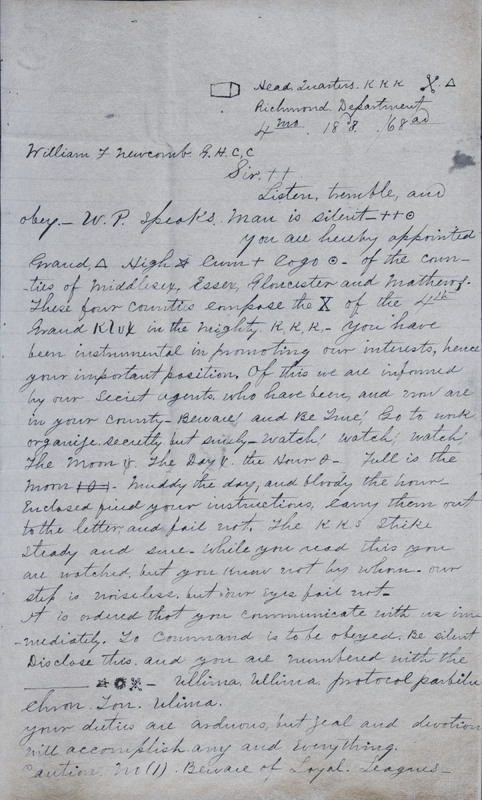 Head Quarters. K K K
Richmond Department
4 mo. 18 '68 ad
William F Newcomb G. H. C, C
Sir. ††
Listen, tremble, and
obey.— W. P. Speaks. Man is silent—++⊙
You are hereby appointed
Grand, △ High ☆ Cum + Cogo ⊙ - of the coun-
ties of Middlesex, Essex, Gloucester and Mathews.
These four Counties compose the X of the 4th
Grand in the mighty K. K. K.- You have
been instrumental in promoting our interests, hence
your important position. Of this we are informed
by our Secret agents. who have been, and now are
in your County- Beware! and Be True! Go to work
organize. secretly, but surely- Watch! Watch! Watch!
The Moon. The Day. the Hour - Full is the
Moon - Muddy the day, and bloody the hour-
Enclosed find your instructions, carry them out
to the letter, and fail not. The K K s Strike
Steady and sure. While you read this you
are watched, but you know not by whom. our
step is noiseless, but our eyes fail not-
It is ordered that you communicate with us im
-mediately. To Command is to be obeyed. Be silent
Disclose this. and you are numbered with the
Ullima. Ullima. protocol
Chron. Ton. Ulima.
your duties are arduous, but zeal and devotion
will accomplish any and everything.
Caution. M (1). Beware of Loyal. Leagues-